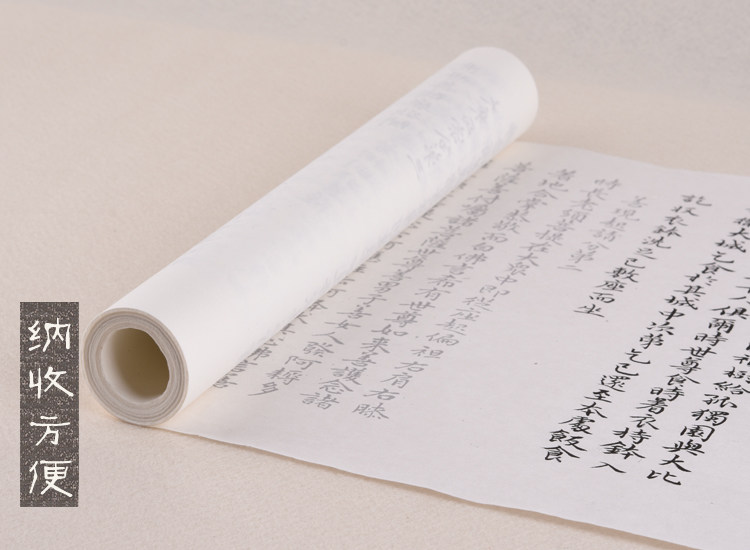 祇樹給孤獨園與大比
人俱爾時世尊食時著衣持鉢入
大城乞食於其城中次第乞已還至本處飯食
訖收衣鉢洗足已敷座而坐
善現起請分第二
時長老須菩提在大眾中即從座起偏袒右肩右膝
著地合掌恭敬而白佛言希有世尊如來善護念諸
菩薩善付囑諸菩薩世尊善男子善女人發阿耨多
纳收方便